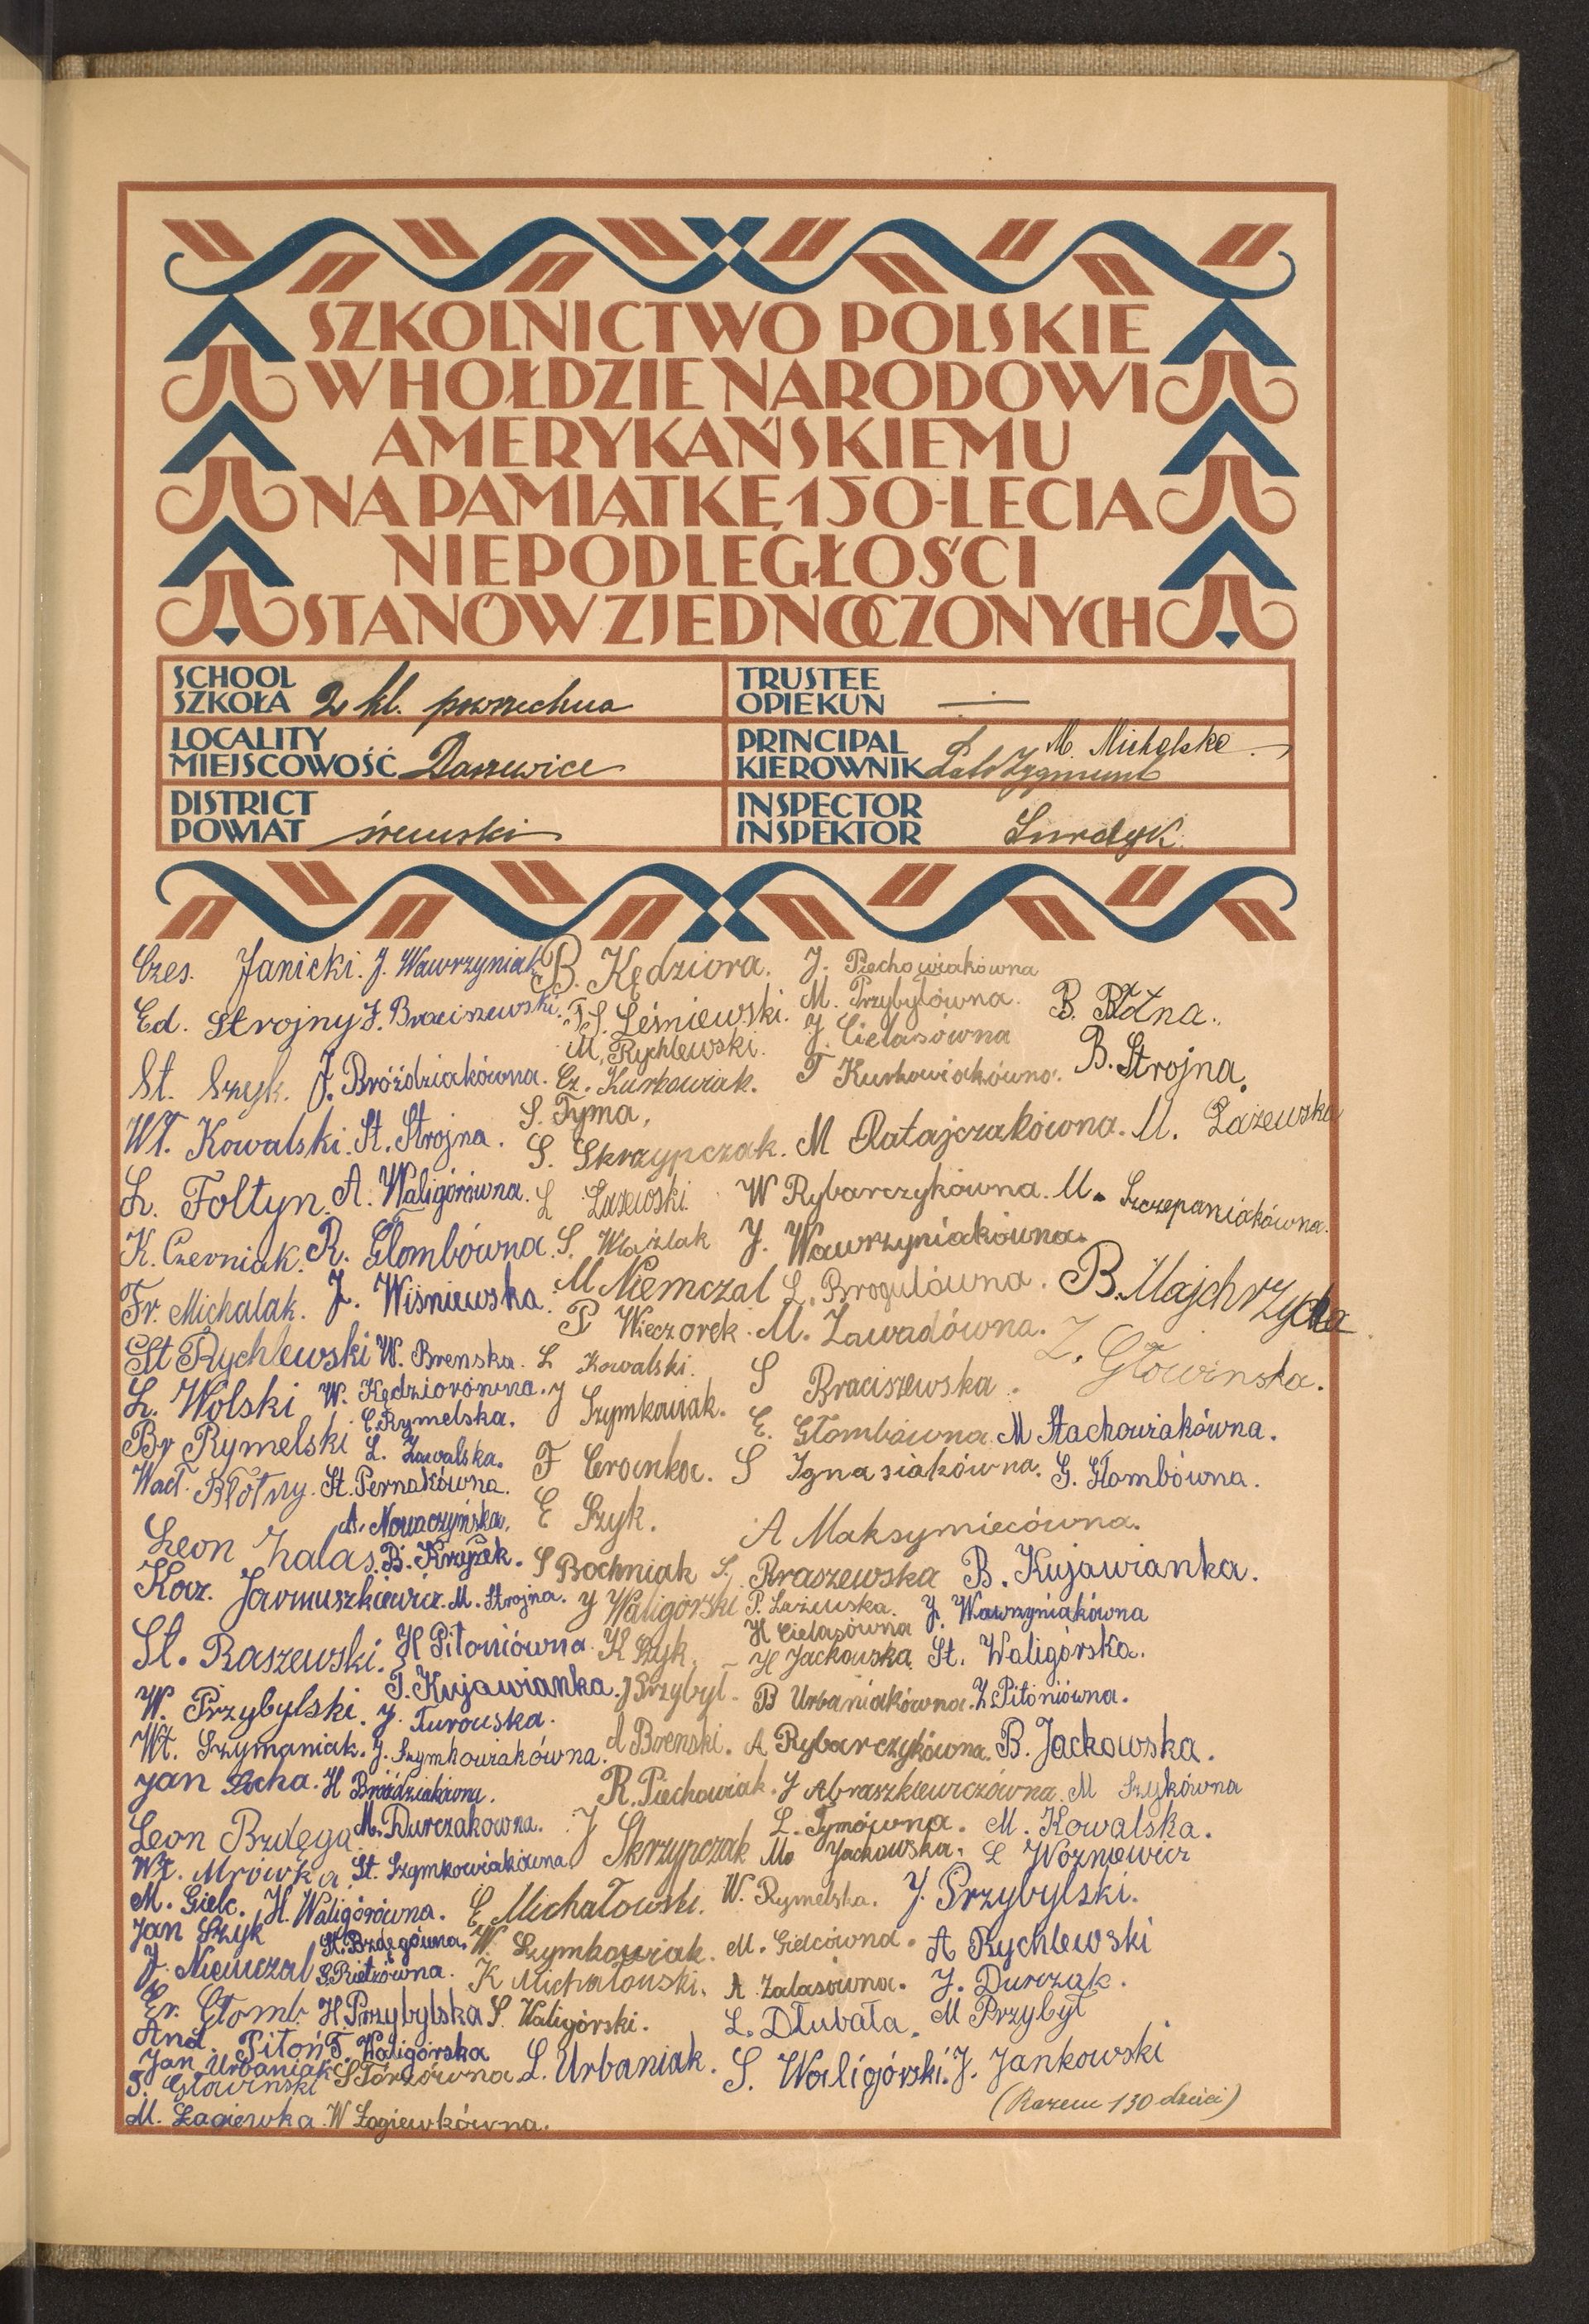 SZKOLNICTWO POLSKIE
W HOŁDZIE NARODOWI
AMERYKAŃSKIEMU
NA PAMIĄTKĘ 150-LECIA
NIEPODLEGŁOŚCI
STANÓW ZJEDNOCZONYCH
SCHOOL
SZKOŁA 2 kl. powszechna
TRUSTEE
OPIEKUN —
LOCALITY
MIEJSCOWOŚĆ Daszewice
PRINCIPAL M. Michalska
KIEROWNIK Zygmunt
DISTRICT
POWIAT śremski
INSPECTOR
INSPEKTOR Surdyk
Czes. Janicki. J. Wawrzyniak B. Kędziora. J. Piechowiakówna
Ed. Strojny J. Braciszewski. S. Leśniewski. M. Przybylówna. B. Błotna.
M. Rychlewski. J. Cielasówna
St. Szyk. J. Bróździakówna. Cz. Kurkowiak. F Kurkowiakówna. B. Strojna.
S. Tyma.
Wł. Kowalski. St. Strojna. S. Skrzypczak. M Ratajczakówna. M. Łażewska
L. Foltyn. A. Waligórówna. L Łażewski. W Rybarczykówna. M. Szczepaniakówna.
K. Czerniak. R. Glombówna. S. Waźlak J. Wawrzyniakówna.
Fr. Michalak. J. Wiśniewska. M Niemczal L. Brogulówna. B. Majchrzycka
P Wieczorek. M. Zawadówna.
St Rychlewski W. Brenska. L Kowalski. S Braciszewska. Z. Głowinska.
L. Wolski W. Kędziorówna. J Szymkowiak.
C. Rymelska. E. Głombówna. M Stachowiakówna.
Br Rymelski L. Zawalska. F Cerownkoc. S Ignasiakówna. G. Głombówna.
Wacł. Błotny. St. Pernakówna.
A. Nowaczyńska. E Szyk. A Maksymiecówna.
Leon Zalas. B. Krążek. S Bochniak S. Rraszewska B. Kujawianka.
Kaz. Jarmuszkiewicz. M. Strojna. J Waligórski P. Łażewska. J. Wawrzyniakówna
H Cielasówna
St. Raszewski. H Pitoniówna. K Szyk. H Jackowska. St. Waligórska.
W. Przybylski. J. Kujawianka. J Przybył. B Urbaniakówna. Z. Pitoniówna.
J. Turowska.
Wł. Szymaniak. J. Szymkowiakówna. A Brenski. A Rybarczykówna. B. Jackowska.
Jan Locha. H Bróździakówna. R. Piechowiak. J Abraszkiewiczówna. M Szykówna
Leon Brzdęga M. Durczakowna. J Skrzypczak L. Tymówna. M. Kowalska.
Wł. Mrówka. St. Szymkowiakówna. M. Jackowska. L Woźniewicz
M. Gielc. H. Waligórówna. E Michałowski. W. Rymelska. J. Przybylski.
Jan Szyk St. Brzdęgówna. W. Szymkowiak. M. Gielcówna. A Rychlewski
J. Niemczal S. Rietzówna. K Michałowski. A Zalasówna. J. Durczak.
Er. Głomb. H Przybylska S. Waligórski. L. Dłubała. M Przybył
And. Pitoń F. Waligórska
Jan Urbaniak S Torzówna L. Urbaniak. S. Waligórski. J. Jankowski
S. Głowinski
M. Łagiewka. W Łagiewkówna. (Razem 130 dzieci)